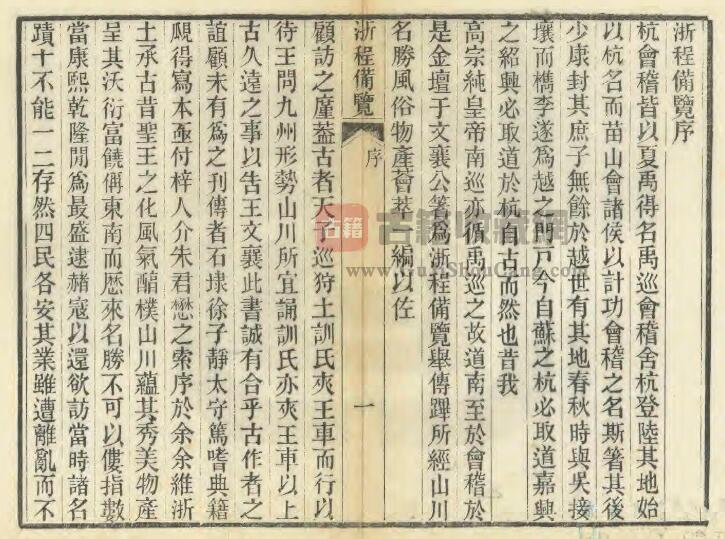 浙程備覽序
杭會稽皆以夏禹得名禹巡會稽舍杭登陸其地始
以杭名而苗山會諸侯以計功會稽之名斯箸其後
少康封其庶子無餘於越世有其地春秋時與吳接
壤而檇李遂爲越之門戶今自蘇之杭必取道嘉興
之紹興必取道於杭自古而然也昔我
高宗純皇帝南巡亦循禹巡之故道南至於會稽於
是金壇于文襄公箸爲浙程備覽舉傳蹕所經山川
名勝風俗物產薈萃一編以佐
浙程備覽
序
一
顧訪之廑葢古者天子巡狩土訓氏夾王車而行以
待王問九州形勢山川所宜誦訓氏亦夾王車以上
古久遠之事以告王文襄此書誠有合乎古作者之
誼顧未有爲之刊傳者石埭徐子靜太守篤嗜典籍
覙得寫本亟付梓人介朱君懋之索序於余余維浙
土承古昔聖王之化風氣醕樸山川蘊其秀美物產
呈其沃衍富饒偁東南而歷來名勝不可以僂指數
當康熙乾隆閒爲最盛逮赭寇以還欲訪當時諸名
蹟十不能一二存然四民各安其業雖遭離亂而不
古籍
古籍收藏網
www.GuJiShouCang.com